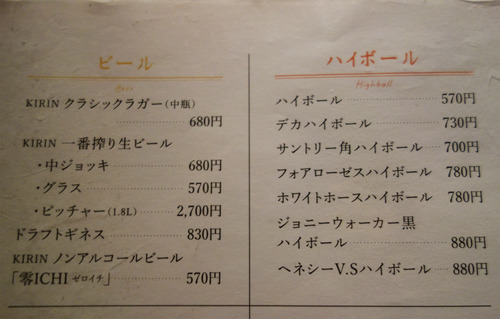 ビール
Beer
KIRIN クラシックラガー（中瓶）
680円
KIRIN 一番搾り生ビール
・中ジョッキ 680円
・グラス 570円
・ピッチャー（1.8L） 2,700円
ドラフトギネス 830円
KIRIN ノンアルコールビール
「零ICHI ゼロイチ」 570円
ハイボール
Highball
ハイボール 570円
デカハイボール 730円
サントリー角ハイボール 700円
フォアローゼスハイボール 780円
ホワイトホースハイボール 780円
ジョニーウォーカー黒
ハイボール 880円
ヘネシーV.Sハイボール 880円